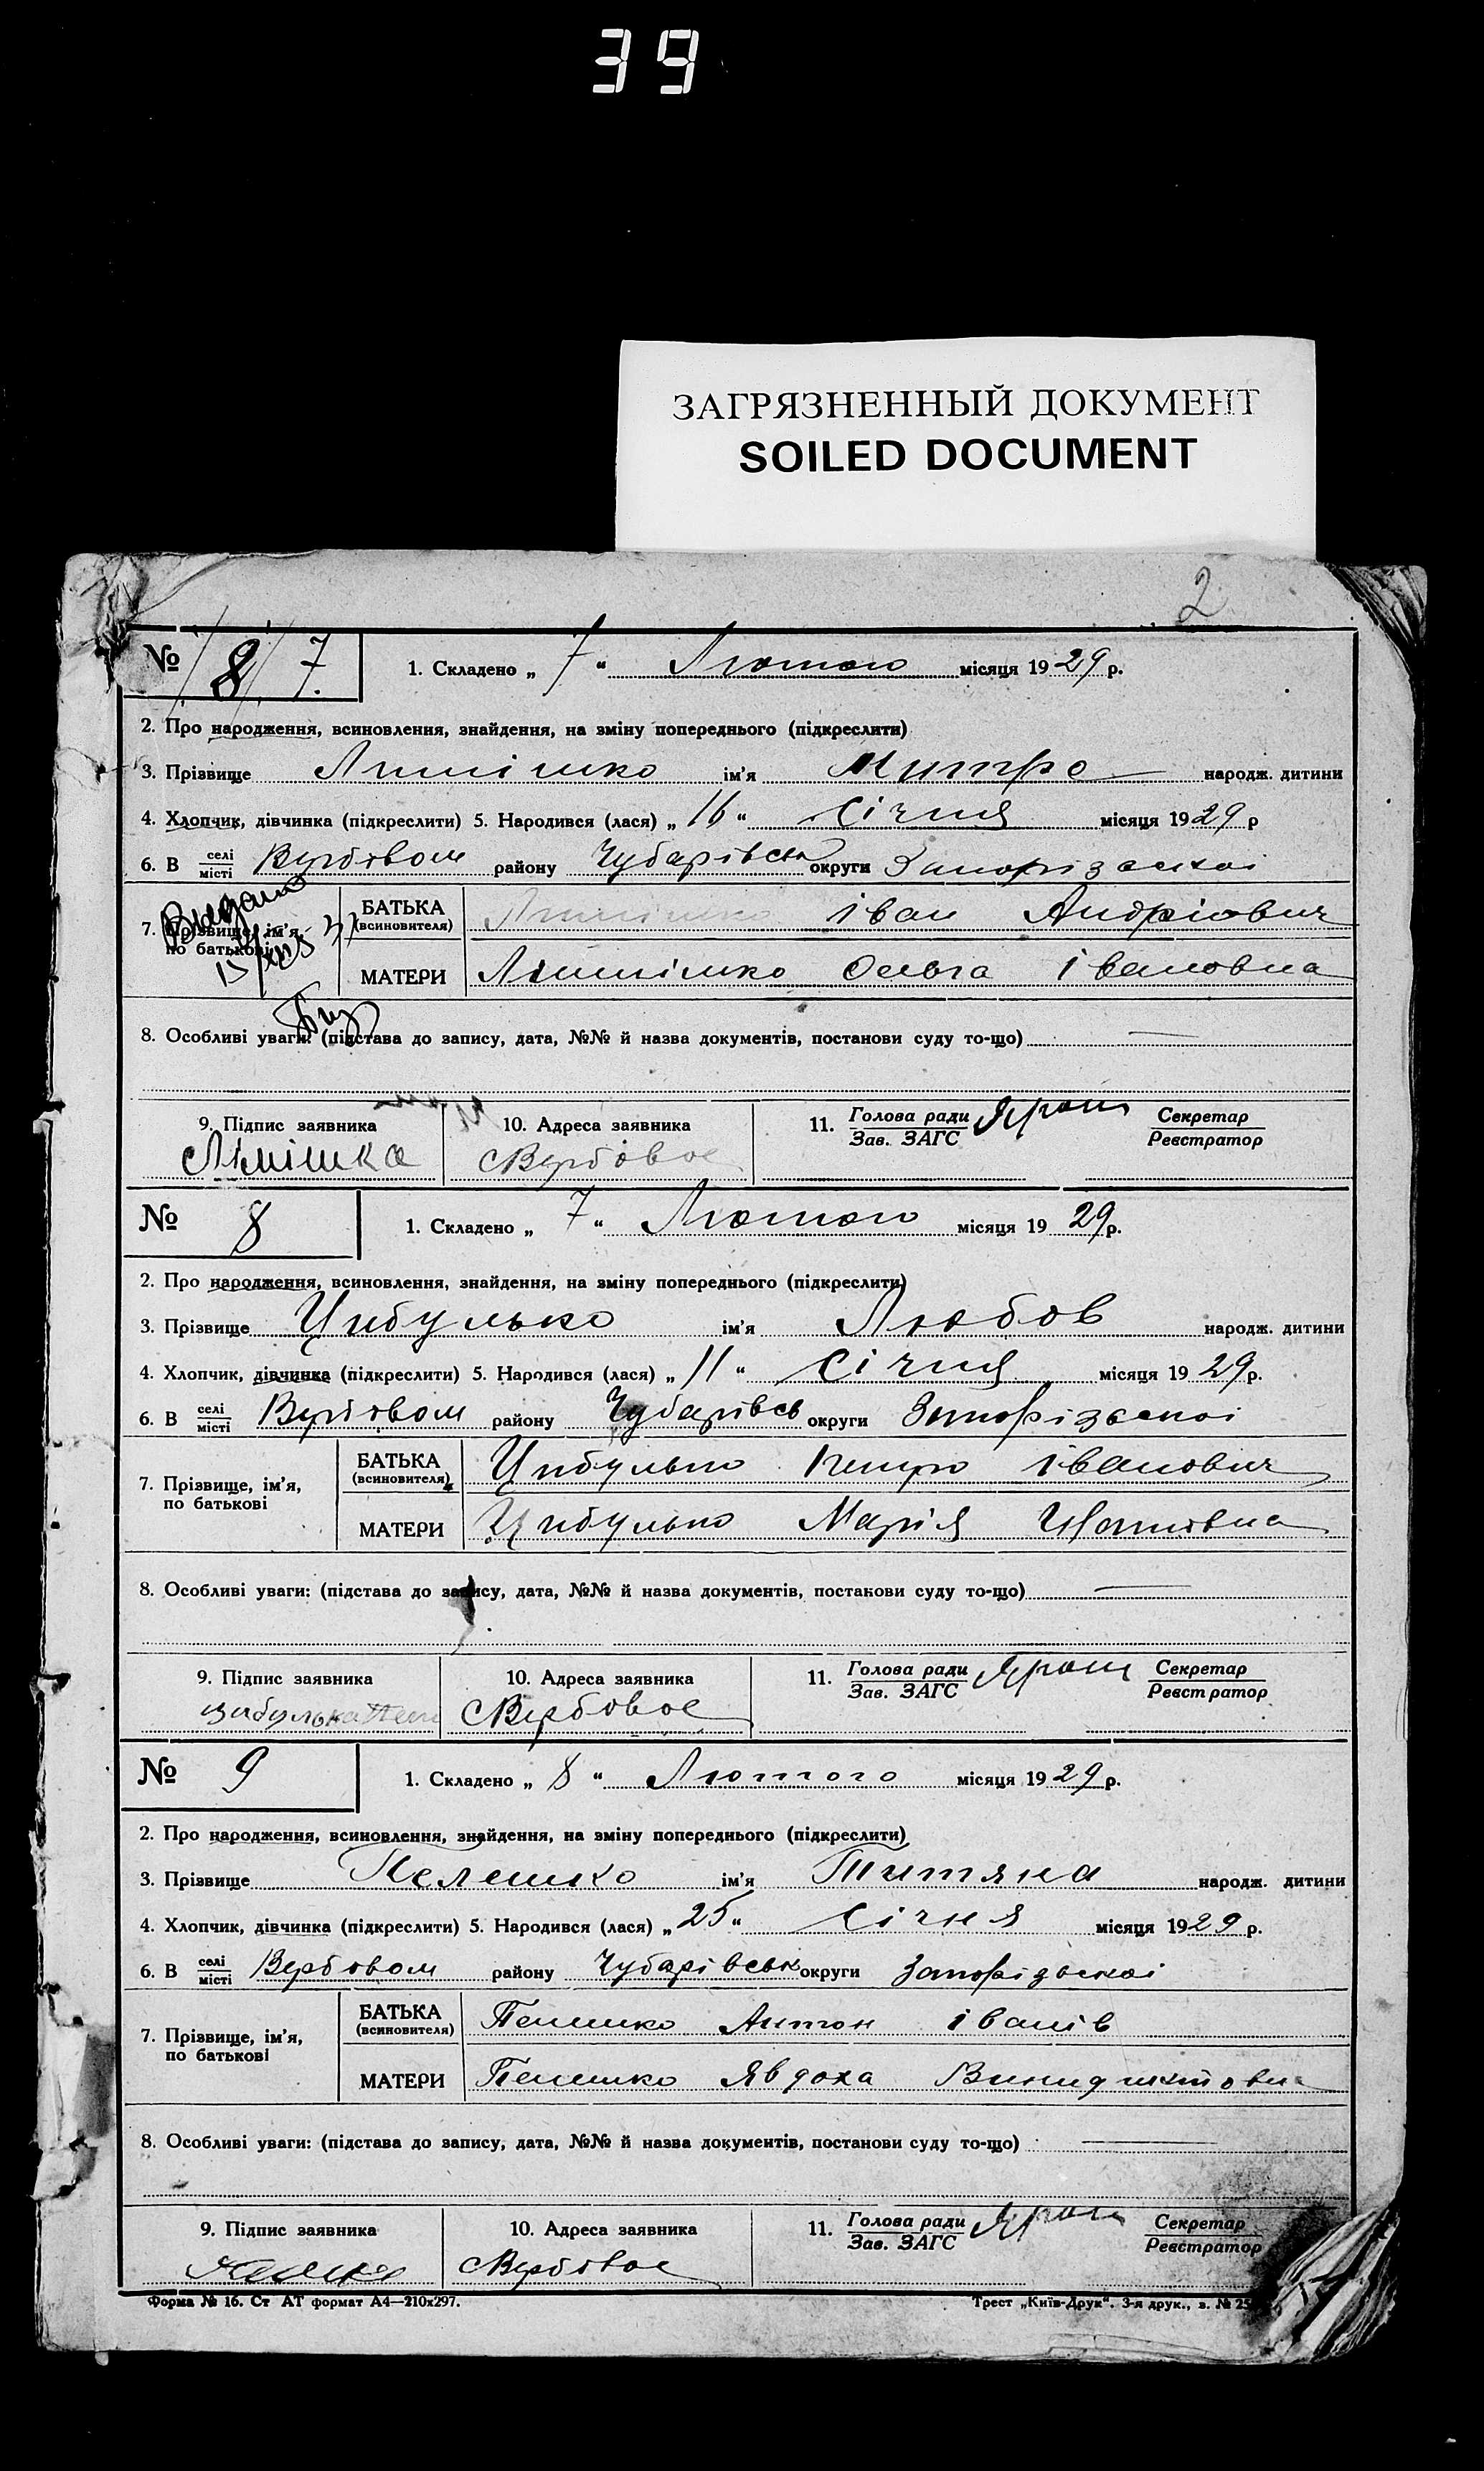 39
ЗАГРЯЗНЕННЫЙ ДОКУМЕНТ
SOILED DOCUMENT
2
№ 8 7.
1. Складено „ 7 “ Лютого місяця 19 29 р.
2. Про народження, всиновлення, знайдення, на зміну попереднього (підкреслити)
3. Прізвище ім'я Митро народж. дитини
4. Хлопчик, дівчинка (підкреслити) 5. Народився (лася) „ 16 “ Січня місяця 19 29 р
6. В селі місті Вербовом району Чубарівськ округи Запорізської
Видано
7. Прізвище, ім'я, по батькові
БАТЬКА (всиновителя) Іван Андріович
МАТЕРИ Ольга Івановна
8. Особливі уваги: (підстава до запису, дата, №№ й назва документів, постанови суду то-що)
9. Підпис заявника 10. Адреса заявника 11. Голова ради Зав. ЗАГС Секретар Реєстратор
Лімішка Вербовое
№ 8
1. Складено „ 7 “ Лютого місяця 19 29 р.
2. Про народження, всиновлення, знайдення, на зміну попереднього (підкреслити)
3. Прізвище Цибулько ім'я Любов народж. дитини
4. Хлопчик, дівчинка (підкреслити) 5. Народився (лася) „ 11 “ Січня місяця 19 29 р.
6. В селі місті Вербовом району Чубарівськ округи Запорізської
7. Прізвище, ім'я, по батькові
БАТЬКА (всиновителя) Цибулько Петро Іванович
МАТЕРИ Цибулько Марія
8. Особливі уваги: (підстава до запису, дата, №№ й назва документів, постанови суду то-що)
9. Підпис заявника 10. Адреса заявника 11. Голова ради Зав. ЗАГС Секретар Реєстратор
Цибулька Вербовое
№ 9
1. Складено „ 8 “ Лютого місяця 19 29 р.
2. Про народження, всиновлення, знайдення, на зміну попереднього (підкреслити)
3. Прізвище Пелешко ім'я Титяна народж. дитини
4. Хлопчик, дівчинка (підкреслити) 5. Народився (лася) „ 25 “ Січня місяця 19 29 р.
6. В селі місті Вербовом району Чубарівськ округи Запорізської
7. Прізвище, ім'я, по батькові
БАТЬКА (всиновителя) Пелешко Антон Іванів
МАТЕРИ Пелешко Явдоха
8. Особливі уваги: (підстава до запису, дата, №№ й назва документів, постанови суду то-що)
9. Підпис заявника 10. Адреса заявника 11. Голова ради Зав. ЗАГС Секретар Реєстратор
Вербовое
Форма № 16. Ст АТ формат А4—210х297. Трест „Київ-Друк“. 3-я друк., з. №